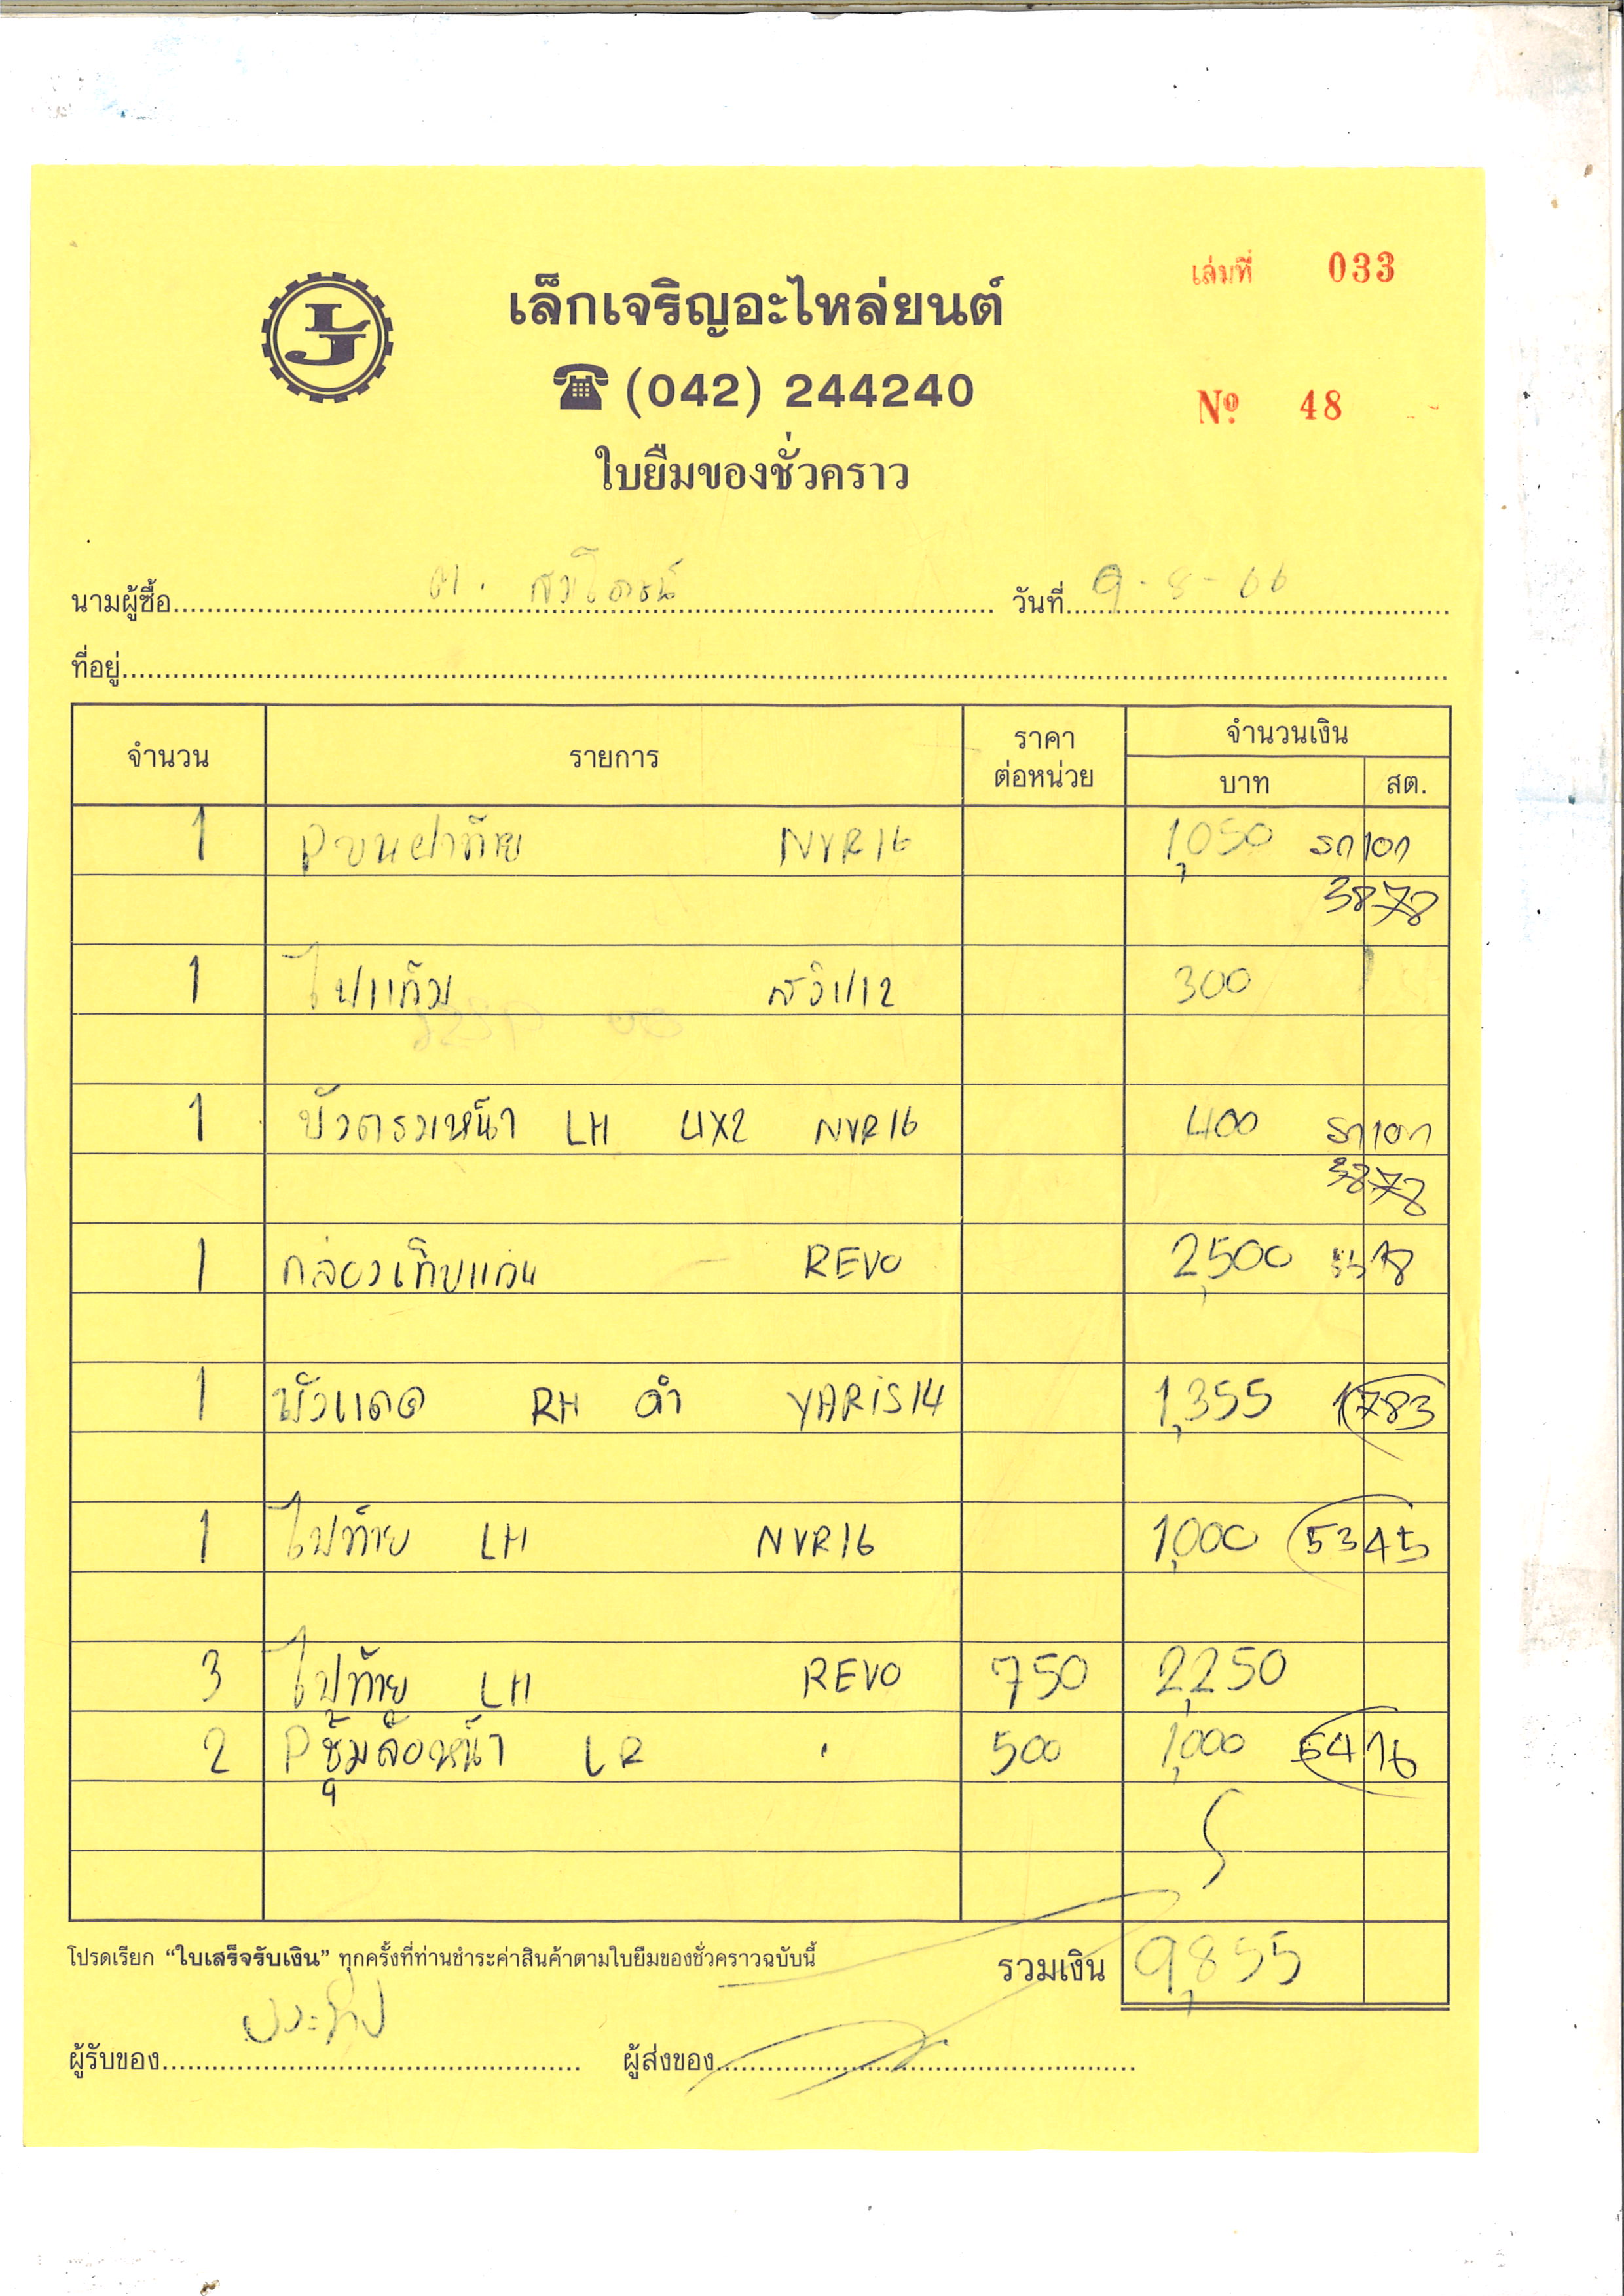 เล่มที่ 033
เล็กเจริญอะไหล่ยนต์
(042) 244240
Nº 48
ใบยืมของชั่วคราว
นามผู้ซื้อ วันที่ 9-8-66
ที่อยู่
จำนวน รายการ ราคาต่อหน่วย จำนวนเงิน
บาท สต.
1 Pบนฝาท้าย NVR16 1,050 รถ10ก
3878
1 ไฟแก้ม สวิฟ12 300
1 บังตรงหน้า LH 4X2 NVR16 400 รถ10ก
3878
1 กล่องเก็บแก้ว REVO 2,500
1 บังแดด RH ดำ YARiS14 1,355 1783
1 ไฟท้าย LH NVR16 1,000 5345
3 ไฟท้าย LH REVO 750 2,250
2 Pซุ้มล้อหน้า LR 500 1,000 6416
โปรดเรียก “ใบเสร็จรับเงิน” ทุกครั้งที่ท่านชำระค่าสินค้าตามใบยืมของชั่วคราวฉบับนี้ รวมเงิน 9,855
ผู้รับของ ผู้ส่งของ